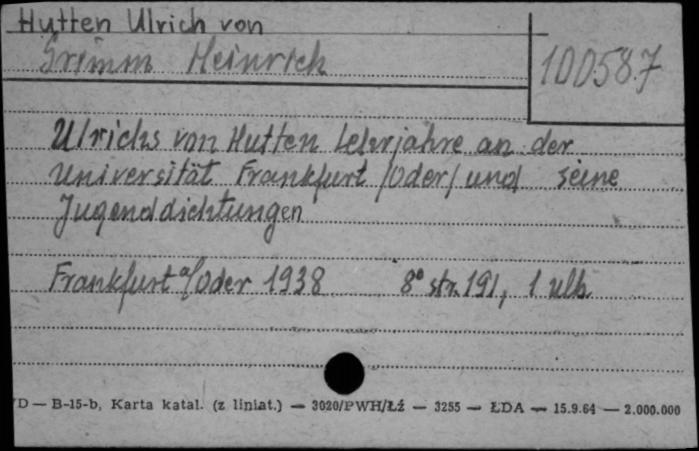 Hutten Ulrich von
Grimm Heinrich
100587
Ulrichs von Hutten Lehrjahre an der
Universität Frankfurt /Oder/ und seine
Jugenddichtungen
Frankfurt a/Oder 1938 8° str. 191, 1 ulb.
D — B-15-b, Karta katal. (z liniat.) — 3020/PWH/Łź — 3255 — ŁDA — 15.9.64 — 2.000.000